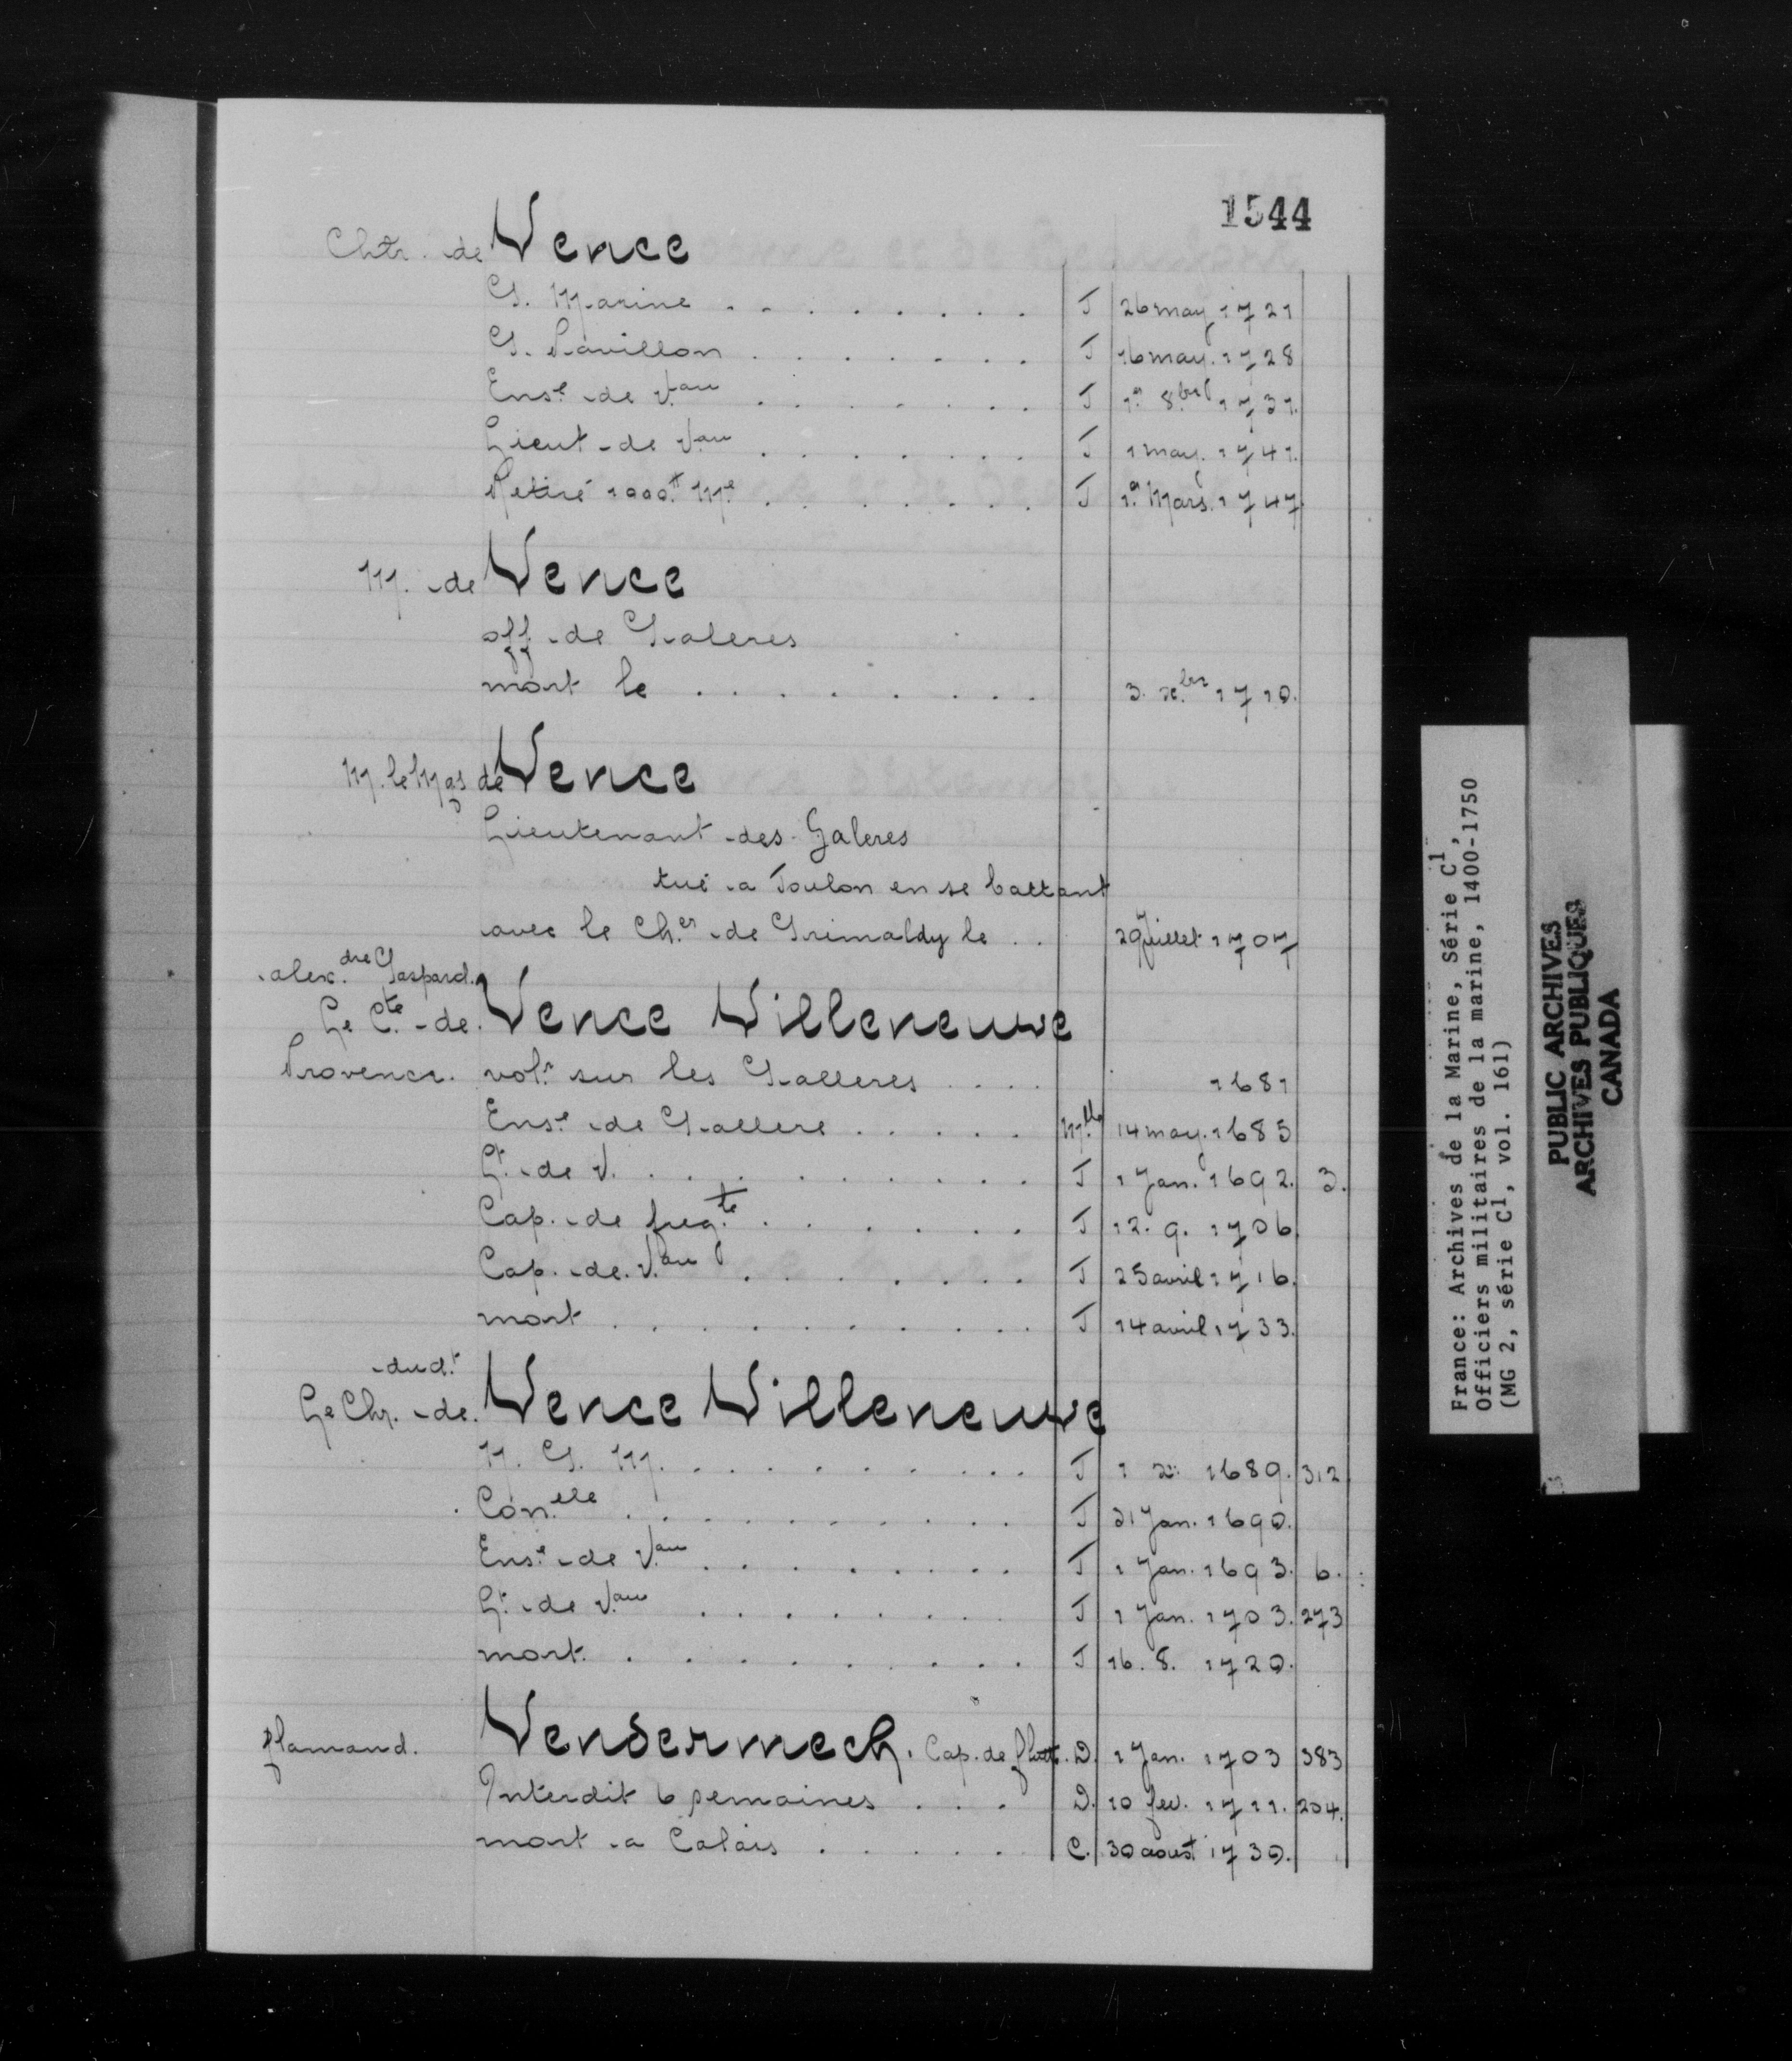 1544
Chtr. de Vence
G. Marine . . . . . . . . T 26 may 1721
G. Pavillon . . . . . . . T 16 may. 1728
Ens.e de V.au . . . . . . . T 1.a 8bre 1731.
Lieut de V.au . . . . . . . T 1 may. 1741.
Retiré 1000.tt M.e . . . . . . . T 1.a Mars. 1747.
M. de Vence
off. de Galeres
mort le . . . . . . . . . 3. xbre 1710.
M. le Mqs de Vence
Lieutenant des Galeres
tué a Toulon en se battant
avec le Ch.er de Grimaldy le . . 29 Juillet 1707
alex.dre Gaspard.
Le C.te de. Vence Villeneuve
Provence. vol.r sur les Galleres . . . . 1681
Ens.e de Gallere . . . . . M.lle 14 may. 1685
Lt. de V. . . . . . . . . . T 1 Jan. 1692. 3.
Cap. de freg.te . . . . . . . T 12. 9. 1706.
Cap. de. V.au . . . . . . . T 25 avril 1716.
mort . . . . . . . . . . . T 14 avril 1733.
dud.t
Le Chr. de. Vence Villeneuve
N. G. M. . . . . . . . . . T 1 x: 1689. 312
Con.elle . . . . . . . . . . T 21 Jan. 1690.
Ens.e de V.au . . . . . . . . T 1 Jan. 1693. 6.
Lt. de V.au . . . . . . . . T 1 Jan. 1703. 273
mort. . . . . . . . . . . T 16. 8. 1720.
flamand. Vendermech. Cap. de flutte. D. 1 Jan. 1703 383
Interdit 6 semaines . . . D. 10 fev. 1711. 204.
mort a Calais . . . . . C. 30 aoust 1730.
France: Archives de la Marine, Série C1,
Officiers militaires de la marine, 1400-1750
(MG 2, série C1, vol. 161)
PUBLIC ARCHIVES
ARCHIVES PUBLIQUES
CANADA